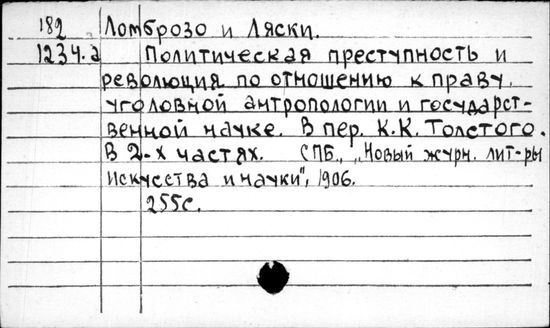 182 Ломброзо и Ляски.
1234.а Политическая преступность и
революция по отношению к праву,
уголовной антропологии и государст-
венной науке. В пер. К.К. Толстого.
В 2-х частях. СПБ., „Новый журн. лит-ры
искусства и науки", 1906.
255с.